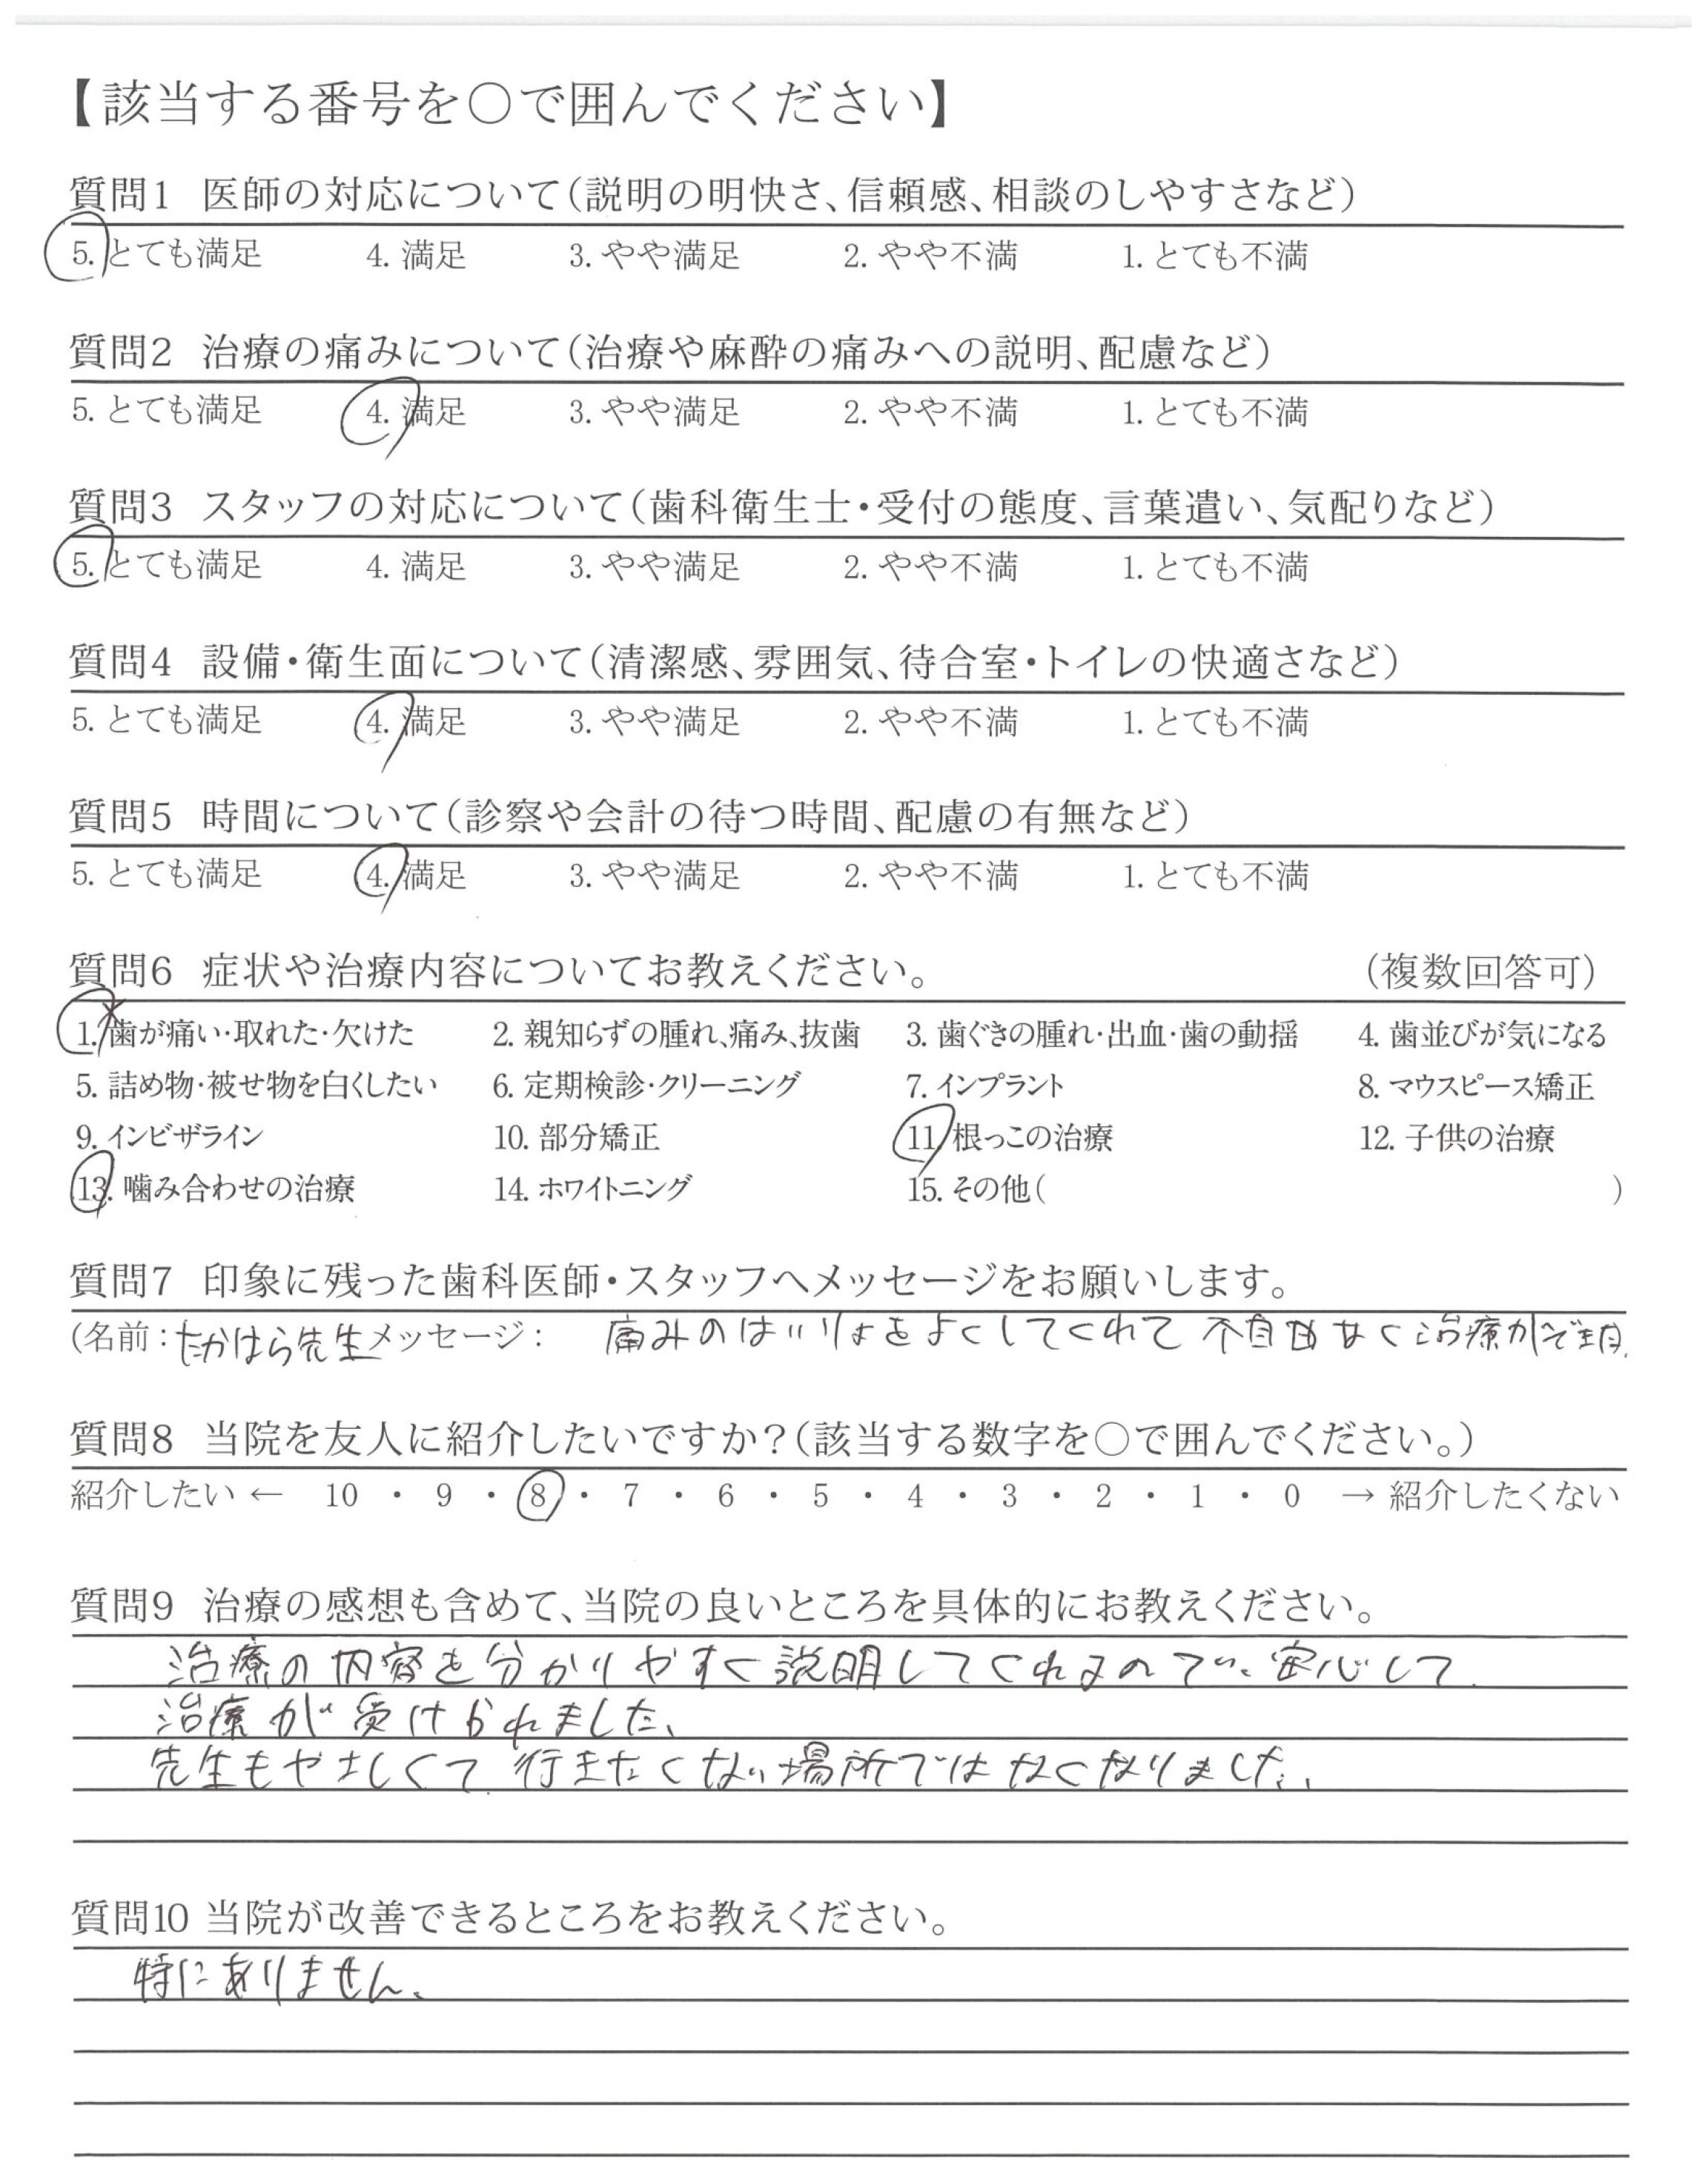 【該当する番号を○で囲んでください】
質問1 医師の対応について(説明の明快さ、信頼感、相談のしやすさなど)
5. とても満足 4. 満足 3. やや満足 2. やや不満 1. とても不満
質問2 治療の痛みについて(治療や麻酔の痛みへの説明、配慮など)
5. とても満足 4. 満足 3. やや満足 2. やや不満 1. とても不満
質問3 スタッフの対応について(歯科衛生士・受付の態度、言葉遣い、気配りなど)
5. とても満足 4. 満足 3. やや満足 2. やや不満 1. とても不満
質問4 設備・衛生面について(清潔感、雰囲気、待合室・トイレの快適さなど)
5. とても満足 4. 満足 3. やや満足 2. やや不満 1. とても不満
質問5 時間について(診察や会計の待つ時間、配慮の有無など)
5. とても満足 4. 満足 3. やや満足 2. やや不満 1. とても不満
質問6 症状や治療内容についてお教えください。 (複数回答可)
1. 歯が痛い・取れた・欠けた 2. 親知らずの腫れ、痛み、抜歯 3. 歯ぐきの腫れ・出血・歯の動揺 4. 歯並びが気になる
5. 詰め物・被せ物を白くしたい 6. 定期検診・クリーニング 7. インプラント 8. マウスピース矯正
9. インビザライン 10. 部分矯正 11. 根っこの治療 12. 子供の治療
13. 噛み合わせの治療 14. ホワイトニング 15. その他( )
質問7 印象に残った歯科医師・スタッフへメッセージをお願いします。
(名前：たかはら先生メッセージ： 痛みのはいりょをよくしてくれて 不自由なく治療ができ
質問8 当院を友人に紹介したいですか？(該当する数字を○で囲んでください。)
紹介したい ← 10 ・ 9 ・ 8 ・ 7 ・ 6 ・ 5 ・ 4 ・ 3 ・ 2 ・ 1 ・ 0 → 紹介したくない
質問9 治療の感想も含めて、当院の良いところを具体的にお教えください。
治療の内容を分かりやすく説明してくれるので、安心して
治療が受けられました、
先生もやさしくて 行きたくない場所ではなくなりました、
質問10 当院が改善できるところをお教えください。
特にありません、